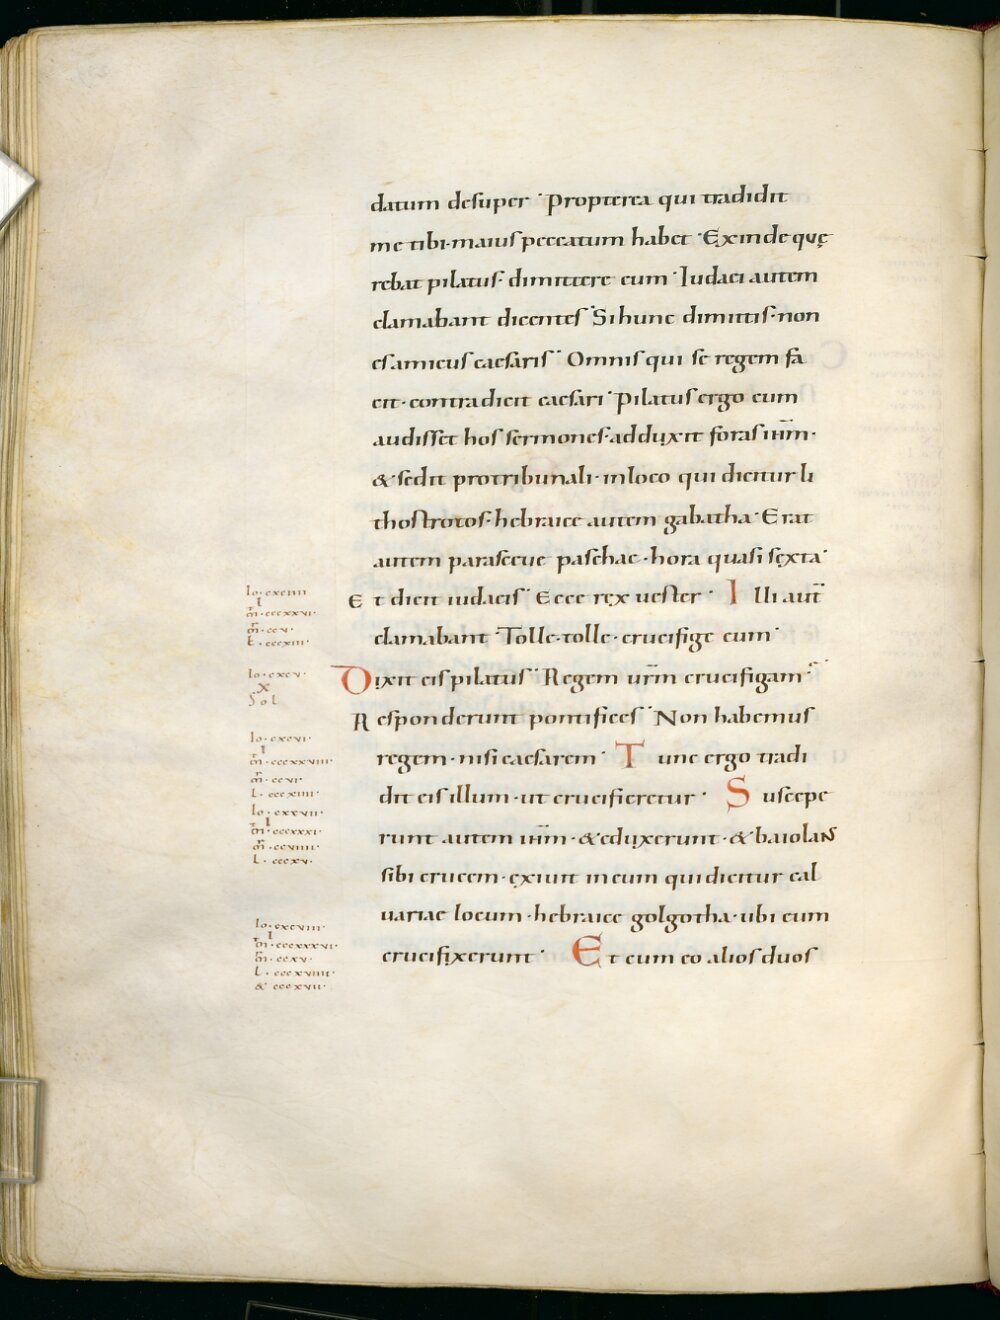 datum desuper · Propterea qui tradidit
me tibi · maius peccatum habet · Exinde quę
rebat pilatus · dimittere eum · Iudaei autem
clamabant dicentes · Si hunc dimittis · non
es amicus caesaris · Omnis qui se regem fa
cit · contradicit caesari · Pilatus ergo cum
audisset hos sermones · adduxit foras ihm̄ ·
& sedit pro tribunali · in loco qui dicitur li
thostrotos · hebraice autem gabatha · Erat
autem parasceue paschae · hora quasi sexta ·
Et dicit iudaeis · Ecce rex uester · Illi aut̄
clamabant · Tolle · tolle · crucifige eum ·
Dixit eis pilatus · Regem ur̄m crucifigam ·
Responderunt pontifices · Non habemus
regem · nisi caesarem · Tunc ergo tradi
dit eis illum · ut crucifigeretur · Suscepe
runt autem ihm̄ · & eduxerunt · & baiolans
sibi crucem · exiuit in eum qui dicitur cal
uariae locum · hebraice golgotha · ubi eum
crucifixerunt · Et cum eo alios duos
Io · cxciiii
I
m̄ · cccxxvi ·
m̄r · ccv ·
L · cccxiii ·
Io · cxcv ·
X
Sol
Io · cxcvi ·
I
m̄ · cccxxviii ·
m̄r · ccvi ·
L · cccxiiii ·
Io · cxxvii ·
I
m̄ · cccxxxi ·
m̄r · ccviiii ·
L · cccxv ·
Io · cxcviii ·
I
m̄ · cccxxxvi ·
m̄r · ccxv ·
L · cccxviiii ·
& cccxvii ·